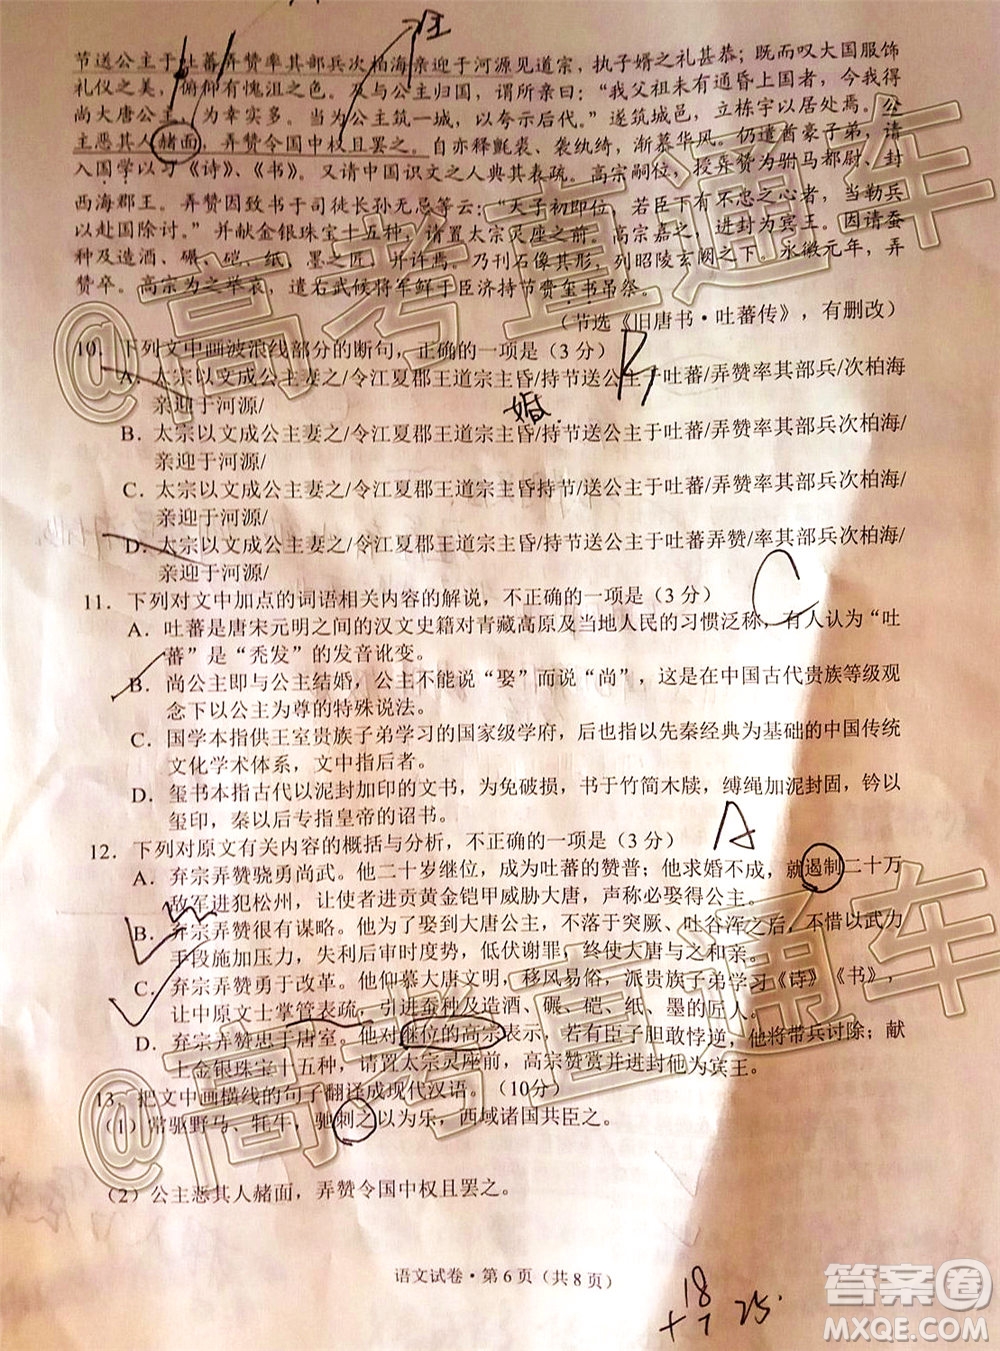 班
节送公主于吐蕃弄赞率其部兵次柏海亲迎于河源见道宗，执子婿之礼甚恭；既而叹大国服饰
礼仪之美，俯仰有愧沮之色。及与公主归国，谓所亲曰：“我父祖未有通昏上国者，今我得
尚大唐公主，为幸实多。当为公主筑一城，以夸示后代。”遂筑城邑，立栋宇以居处焉。公
主恶其人赭面，弄赞令国中权且罢之。自亦释氈裘、袭纨绮，渐慕华风。仍遣酋豪子弟，请
入国学以习《诗》、《书》。又请中国识文之人典其表疏。高宗嗣位，授弄赞为驸马都尉、封
西海郡王。弄赞因致书于司徒长孙无忌等云：“天子初即位，若臣下有不忠之心者，当勒兵
以赴国除讨。”并献金银珠宝十五种，请置太宗灵座之前。高宗嘉之，进封为宾王。因请蚕
种及造酒、碾、硙、纸、墨之匠，并许焉。乃刊石像其形，列昭陵玄阙之下。永徽元年，弄
赞卒。高宗为之举哀，遣右武候将军鲜于臣济持节赍玺书吊祭。
（节选《旧唐书·吐蕃传》，有删改）
10．下列文中画波浪线部分的断句，正确的一项是（3 分）
A．太宗以文成公主妻之/令江夏郡王道宗主昏/持节送公主于吐蕃/弄赞率其部兵/次柏海
亲迎于河源/
婚
B．太宗以文成公主妻之/令江夏郡王道宗主昏/持节送公主于吐蕃/弄赞率其部兵次柏海/
亲迎于河源/
C．太宗以文成公主妻之/令江夏郡王道宗主昏持节/送公主于吐蕃/弄赞率其部兵次柏海/
亲迎于河源/
D．太宗以文成公主妻之/令江夏郡王道宗主昏/持节送公主于吐蕃弄赞/率其部兵次柏海/
亲迎于河源/
11．下列对文中加点的词语相关内容的解说，不正确的一项是（3 分）
C
A．吐蕃是唐宋元明之间的汉文史籍对青藏高原及当地人民的习惯泛称，有人认为“吐
蕃”是“秃发”的发音讹变。
B．尚公主即与公主结婚，公主不能说“娶”而说“尚”，这是在中国古代贵族等级观
念下以公主为尊的特殊说法。
C．国学本指供王室贵族子弟学习的国家级学府，后也指以先秦经典为基础的中国传统
文化学术体系，文中指后者。
D．玺书本指古代以泥封的文书，为免破损，书于竹简木牍，缚绳加泥封固，钤以
玺印，秦以后专指皇帝的诏书。
12．下列对原文有关内容的概括与分析，不正确的一项是（3 分）
A
A．弃宗弄赞骁勇尚武。他二十岁继位，成为吐蕃的赞普；他求婚不成，就遏制二十万
敌军进犯松州，让使者进贡黄金铠甲威胁大唐，声称必娶得公主。
B．弃宗弄赞很有谋略。他为了娶到大唐公主，不落于突厥、吐谷浑之后，不惜以武力
手段施加压力，失利后审时度势，低伏谢罪，终使大唐与之和亲。
C．弃宗弄赞勇于改革。他倾慕大唐文明，移风易俗，派贵族子弟学习《诗》《书》，
让中原文士掌管表疏，引进蚕种及造酒、碾、硙、纸、墨的工匠。
D．弃宗弄赞忠于唐室。他对继位的高宗表示，若有臣子胆敢悖逆，他将带兵讨除；献
上金银珠宝十五种，请置太宗灵座前，高宗赞赏并进封其为宾王。
13．把文中画横线的句子翻译成现代汉语。（10分）
（1）常驱野马、牦牛，驰刺之以为乐，西域诸国共臣之。
（2）公主恶其人赭面，弄赞令国中权且罢之。
语文试卷·第 6 页（共 8 页）
18
+7 25.
@高考直通车
@高考直通车
答案圈
MXQE.COM